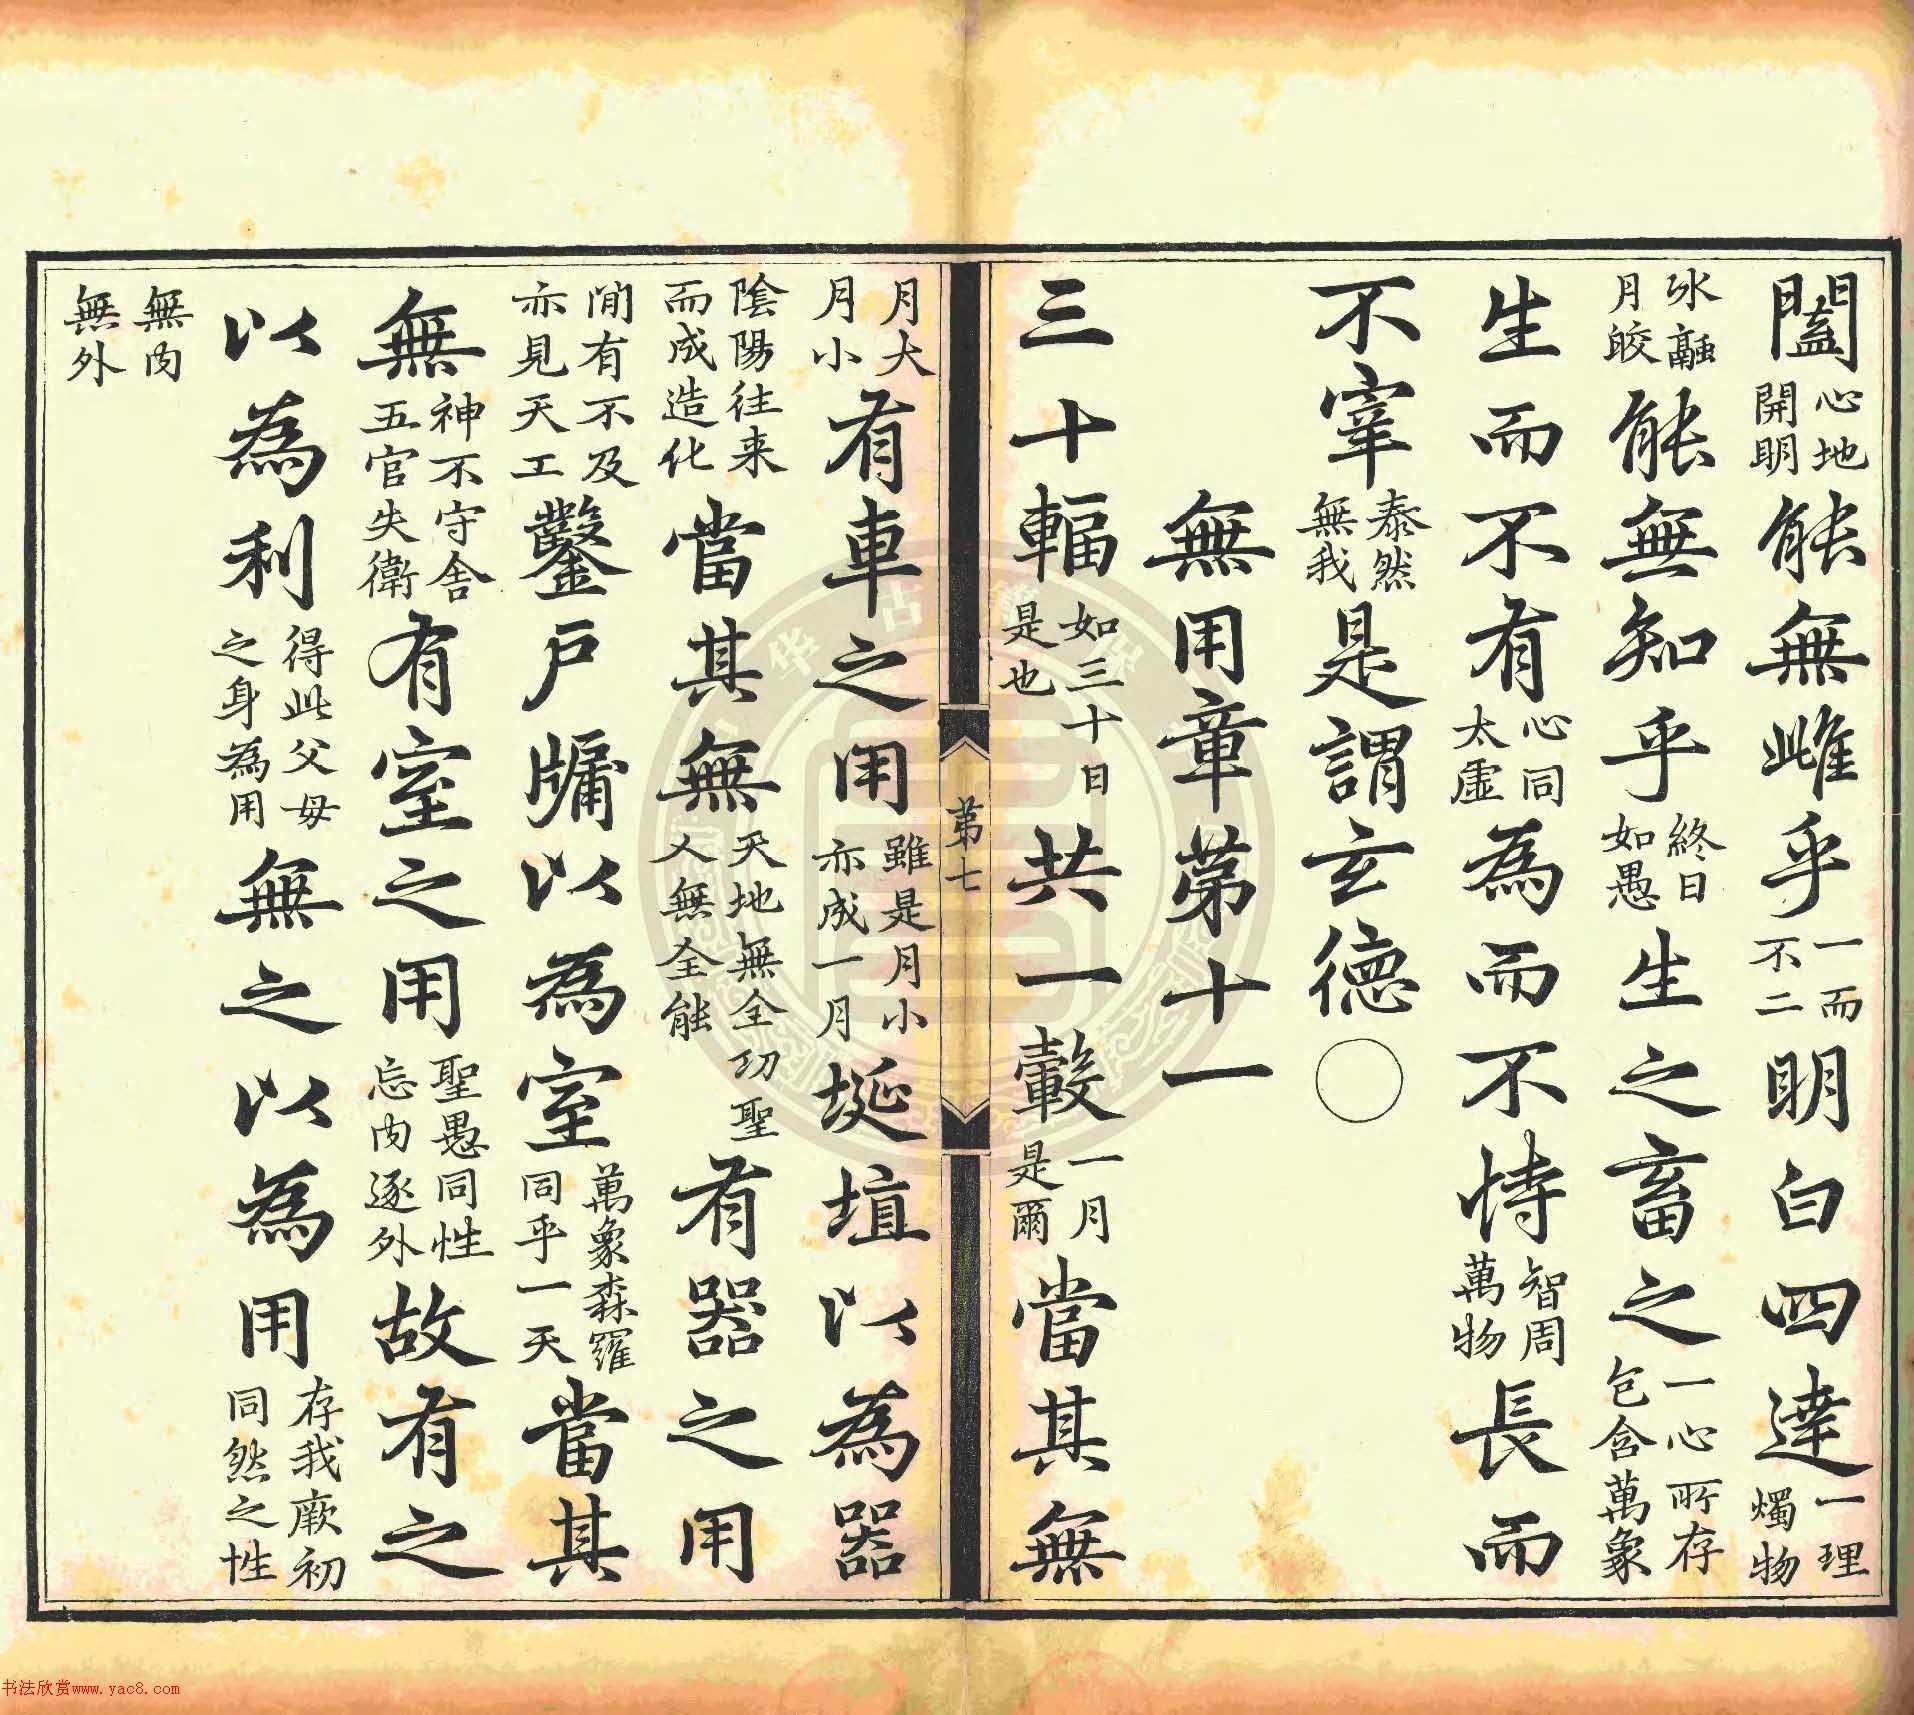 闔心地開明能無雌乎一而不二明白四達一理燭物
冰融月皎能無知乎終日如愚生之畜之一心所存包含萬象
生而不有心同太虛為而不恃智周萬物長而
不宰泰然無我是謂玄德○
無用章第十一
三十輻如三十日是也共一轂一月是爾當其無
第七
月大月小有車之用雖是月小亦成一月埏埴以為器
陰陽往来而成造化當其無天地無全功聖人無全能有器之用
閒有不及亦見天工鑿戶牖以為室萬象森羅同乎一天當其
無神不守舍五官失衛有室之用聖愚同性忘內逐外故有之
以為利得此父母之身為用無之以為用存我厥初同然之性
無內無外
书法欣赏www.yac8.com